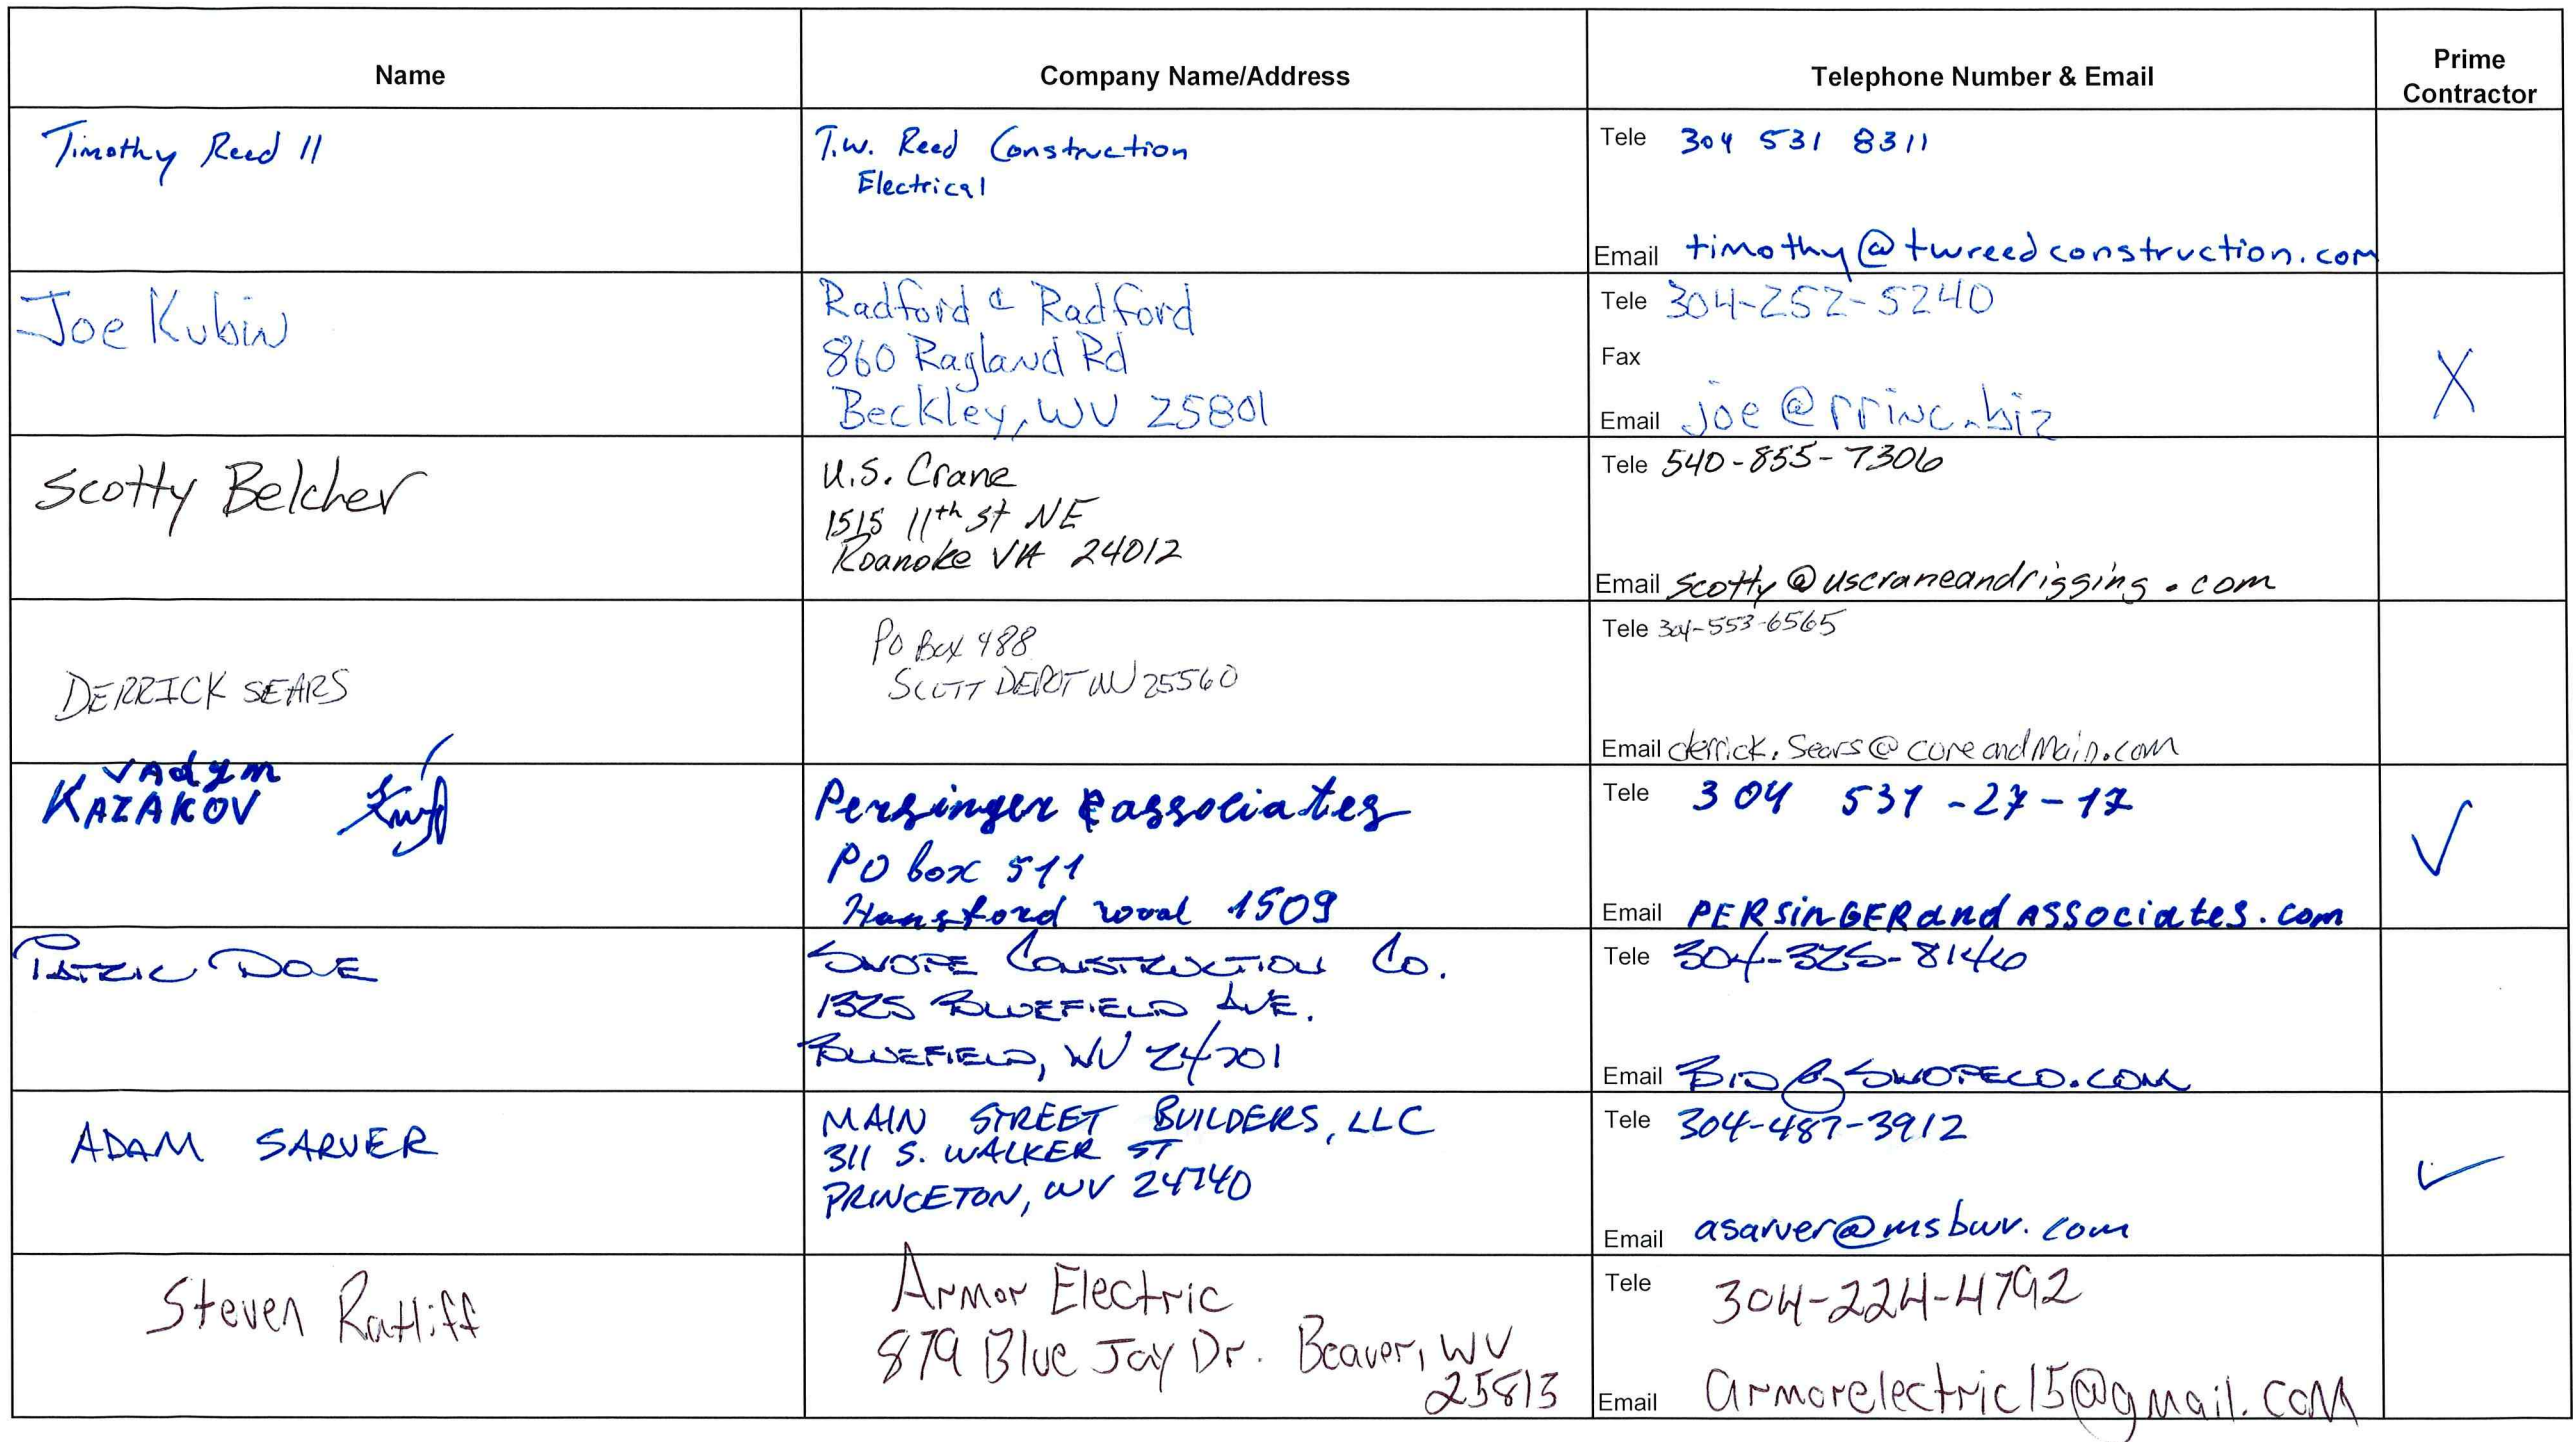 Name
Company Name/Address
Telephone Number & Email
Prime
Contractor
Timothy Reed II
T.W. Reed Construction
Electrical
Tele 304 531 8311
Email timothy@twreedconstruction.com
Joe Kubin
Radford & Radford
860 Ragland Rd
Beckley, WV 25801
Tele 304-252-5240
Fax
Email joe@rrinc.biz
X
Scotty Belcher
U.S. Crane
1515 11th St NE
Roanoke VA 24012
Tele 540-855-7306
Email scotty@uscraneandrigging.com
DERRICK SEARS
PO Box 488
SCOTT DEPOT WV 25560
Tele 304-553-6565
Email derrick.sears@coreandmain.com
VAdym
KAZAKOV
Persinger & associates
PO box 511
Hansford road 1509
Tele 304 531-27-17
Email PERSinGERandASSociates.com
✓
PATRIC DOVE
SWOPE CONSTRUCTION CO.
1325 BLUEFIELD AVE.
BLUEFIELD, WV 24701
Tele 304-325-8146
Email BID@SWOPECO.COM
ADAM SARVER
MAIN STREET BUILDERS, LLC
311 S. WALKER ST
PRINCETON, WV 24740
Tele 304-487-3912
Email asarver@msbwv.com
✓
Steven Ratliff
Armor Electric
879 Blue Jay Dr. Beaver, WV
25813
Tele 304-224-4792
Email armorelectric15@gmail.com